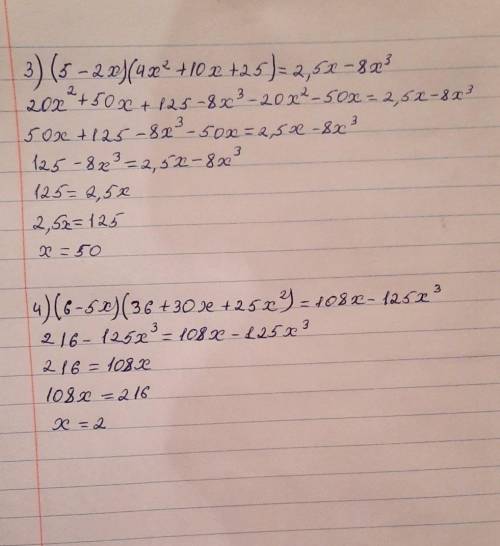 3) (5 - 2x)(4x² + 10x + 25) = 2,5x - 8x³
20x² + 50x + 125 - 8x³ - 20x² - 50x = 2,5x - 8x³
50x + 125 - 8x³ - 50x = 2,5x - 8x³
125 - 8x³ = 2,5x - 8x³
125 = 2,5x
2,5x = 125
x = 50
4) (6 - 5x)(36 + 30x + 25x²) = 108x - 125x³
216 - 125x³ = 108x - 125x³
216 = 108x
108x = 216
x = 2